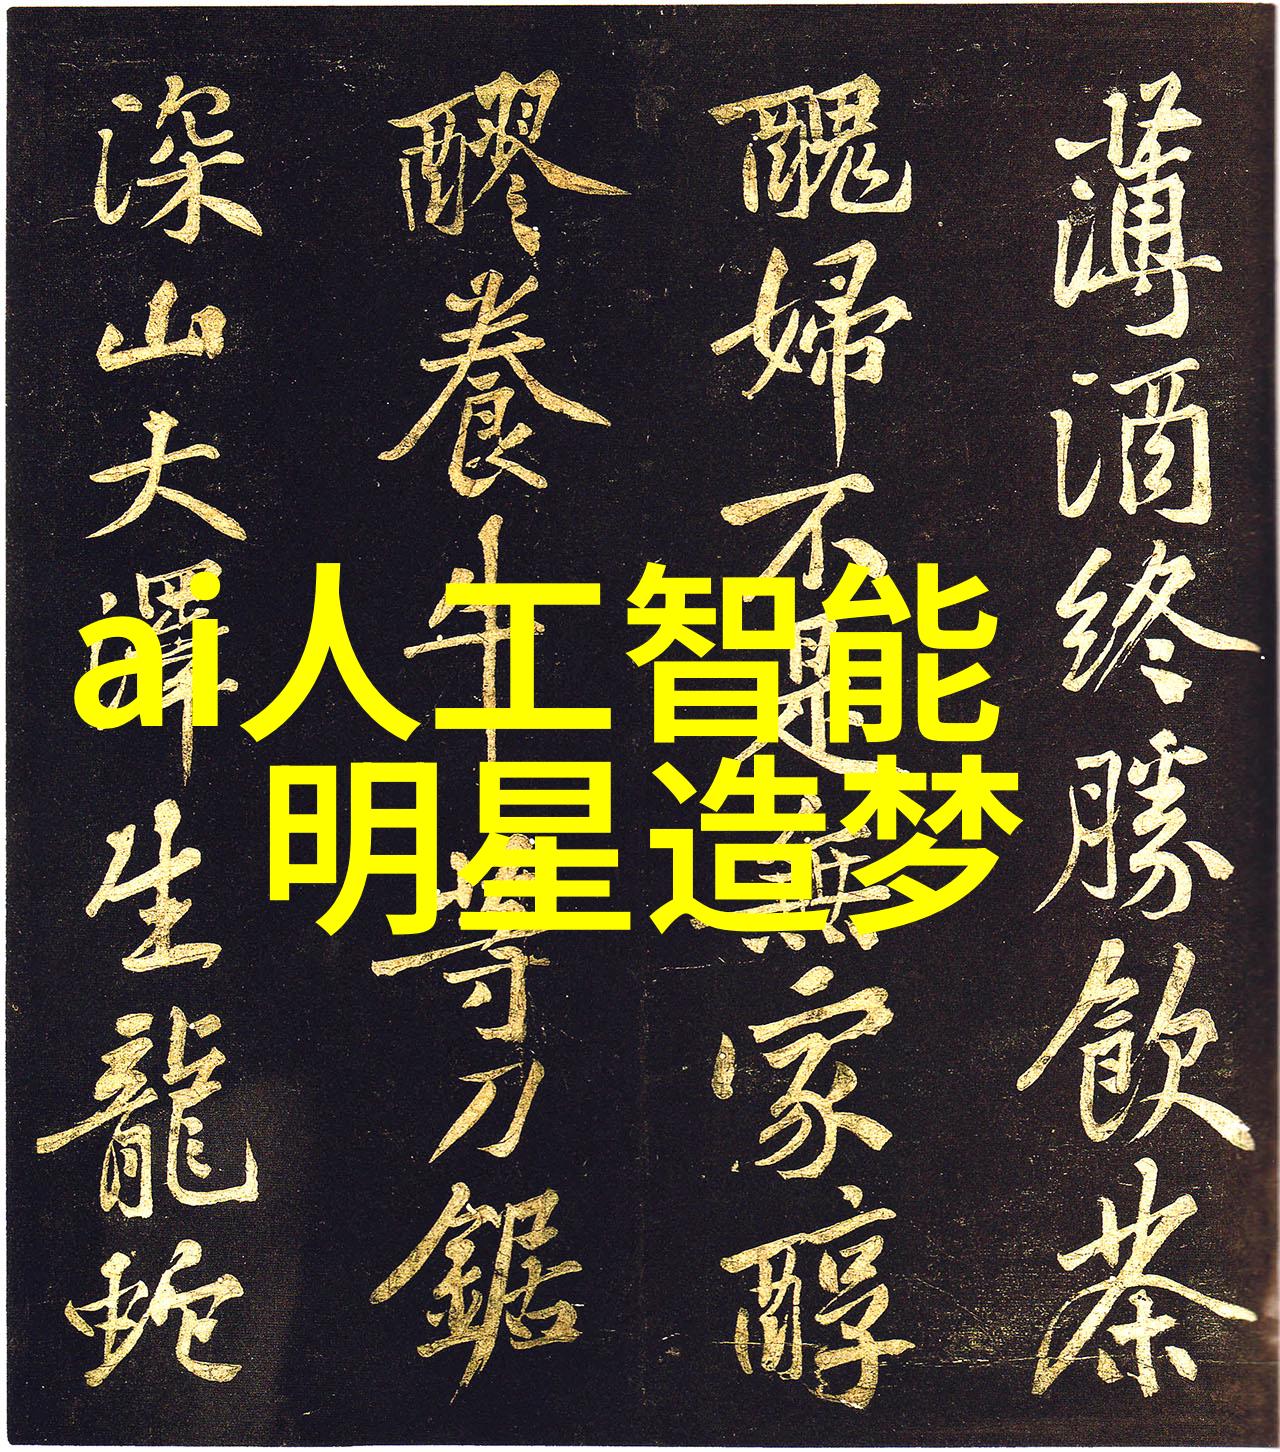 ai人工智能
明星造梦
薄酒終勝飲茶
醜婦不是無家醇
醪養牛等刀鋸
深山大澤生龍蛇